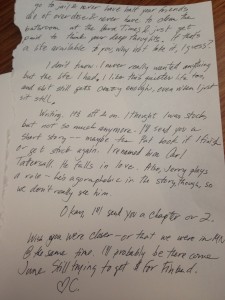 go to jail & never have but your friends
die of overdose & never have to clean the
bathroom at the
used to think your deep thoughts. If that's
a life available to you, why not take it, I guess?
I don't know. I never really wanted anything
but the life I had. I like this quieter life too,
and shit still gets crazy enough, even when I just
sit still.
Writing it's off & on. I thought I was stuck,
but not so much anymore. I'll send you a
short story — maybe the first book if I finish
or get stuck again. I renamed him Charly
Tatersall. He falls in love. Also, Jerry plays
a role — he's agoraphobic in the story though, so
we don't really see him.
Okay, I'll send you a chapter or 2.
Wish you were closer — or that we were in MN
@ the same time. I'll probably be there come
June. Still trying to get $ for Finland.
♡C